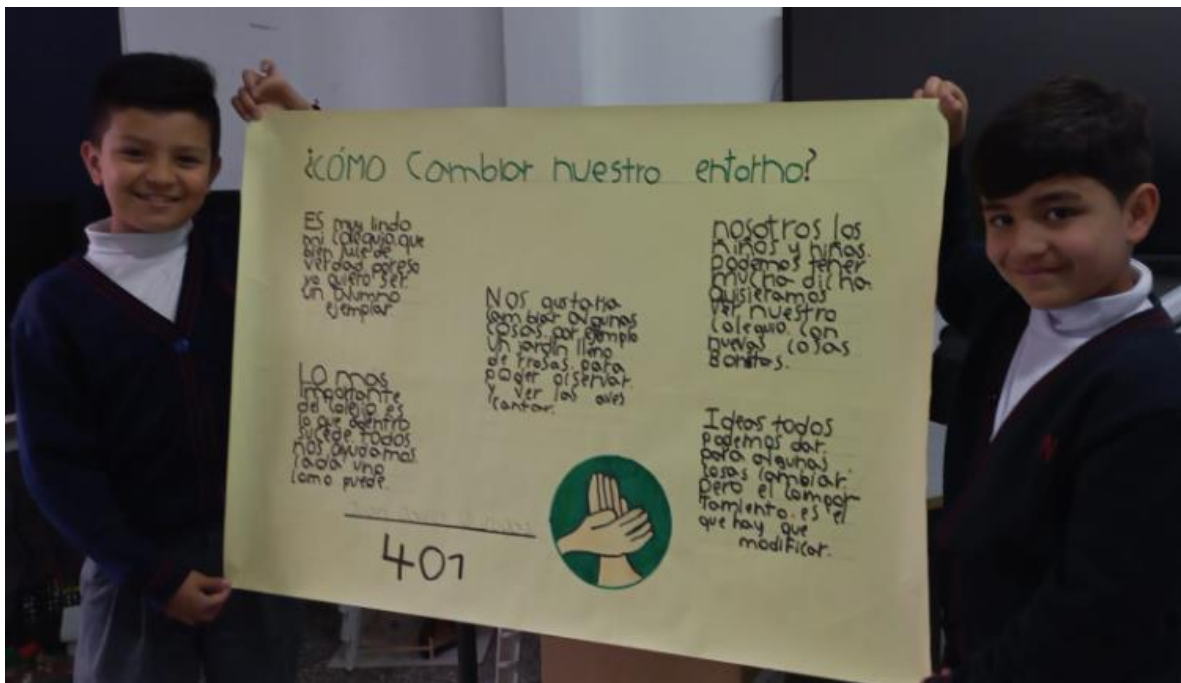 ¿CÓMO Cambiar nuestro entorno?
ES muy lindo
mi colegio que
bien jule de
verdad por eso
yo quiero ser
un alumno
ejemplar
Lo mas
importante
del colegio es
lo que adentro
sucede todos
nos ayudamos
cada uno
como puede.
Nos gustaria
cambiar algunas
cosas. por ejemplo
un jardin lleno
de rrosas. para
poder observar.
y ver las aves
cantar.
nosotros los
niños y niñas.
podemos tener
mucha dicha
quisieramos
ver nuestro
colegio con
nuevas cosas
Bonitas.
Ideas todos
podemos dar.
para algunas
cosas cambiar.
Pero el compor
tamiento. es el
que hay que
modificar.
401